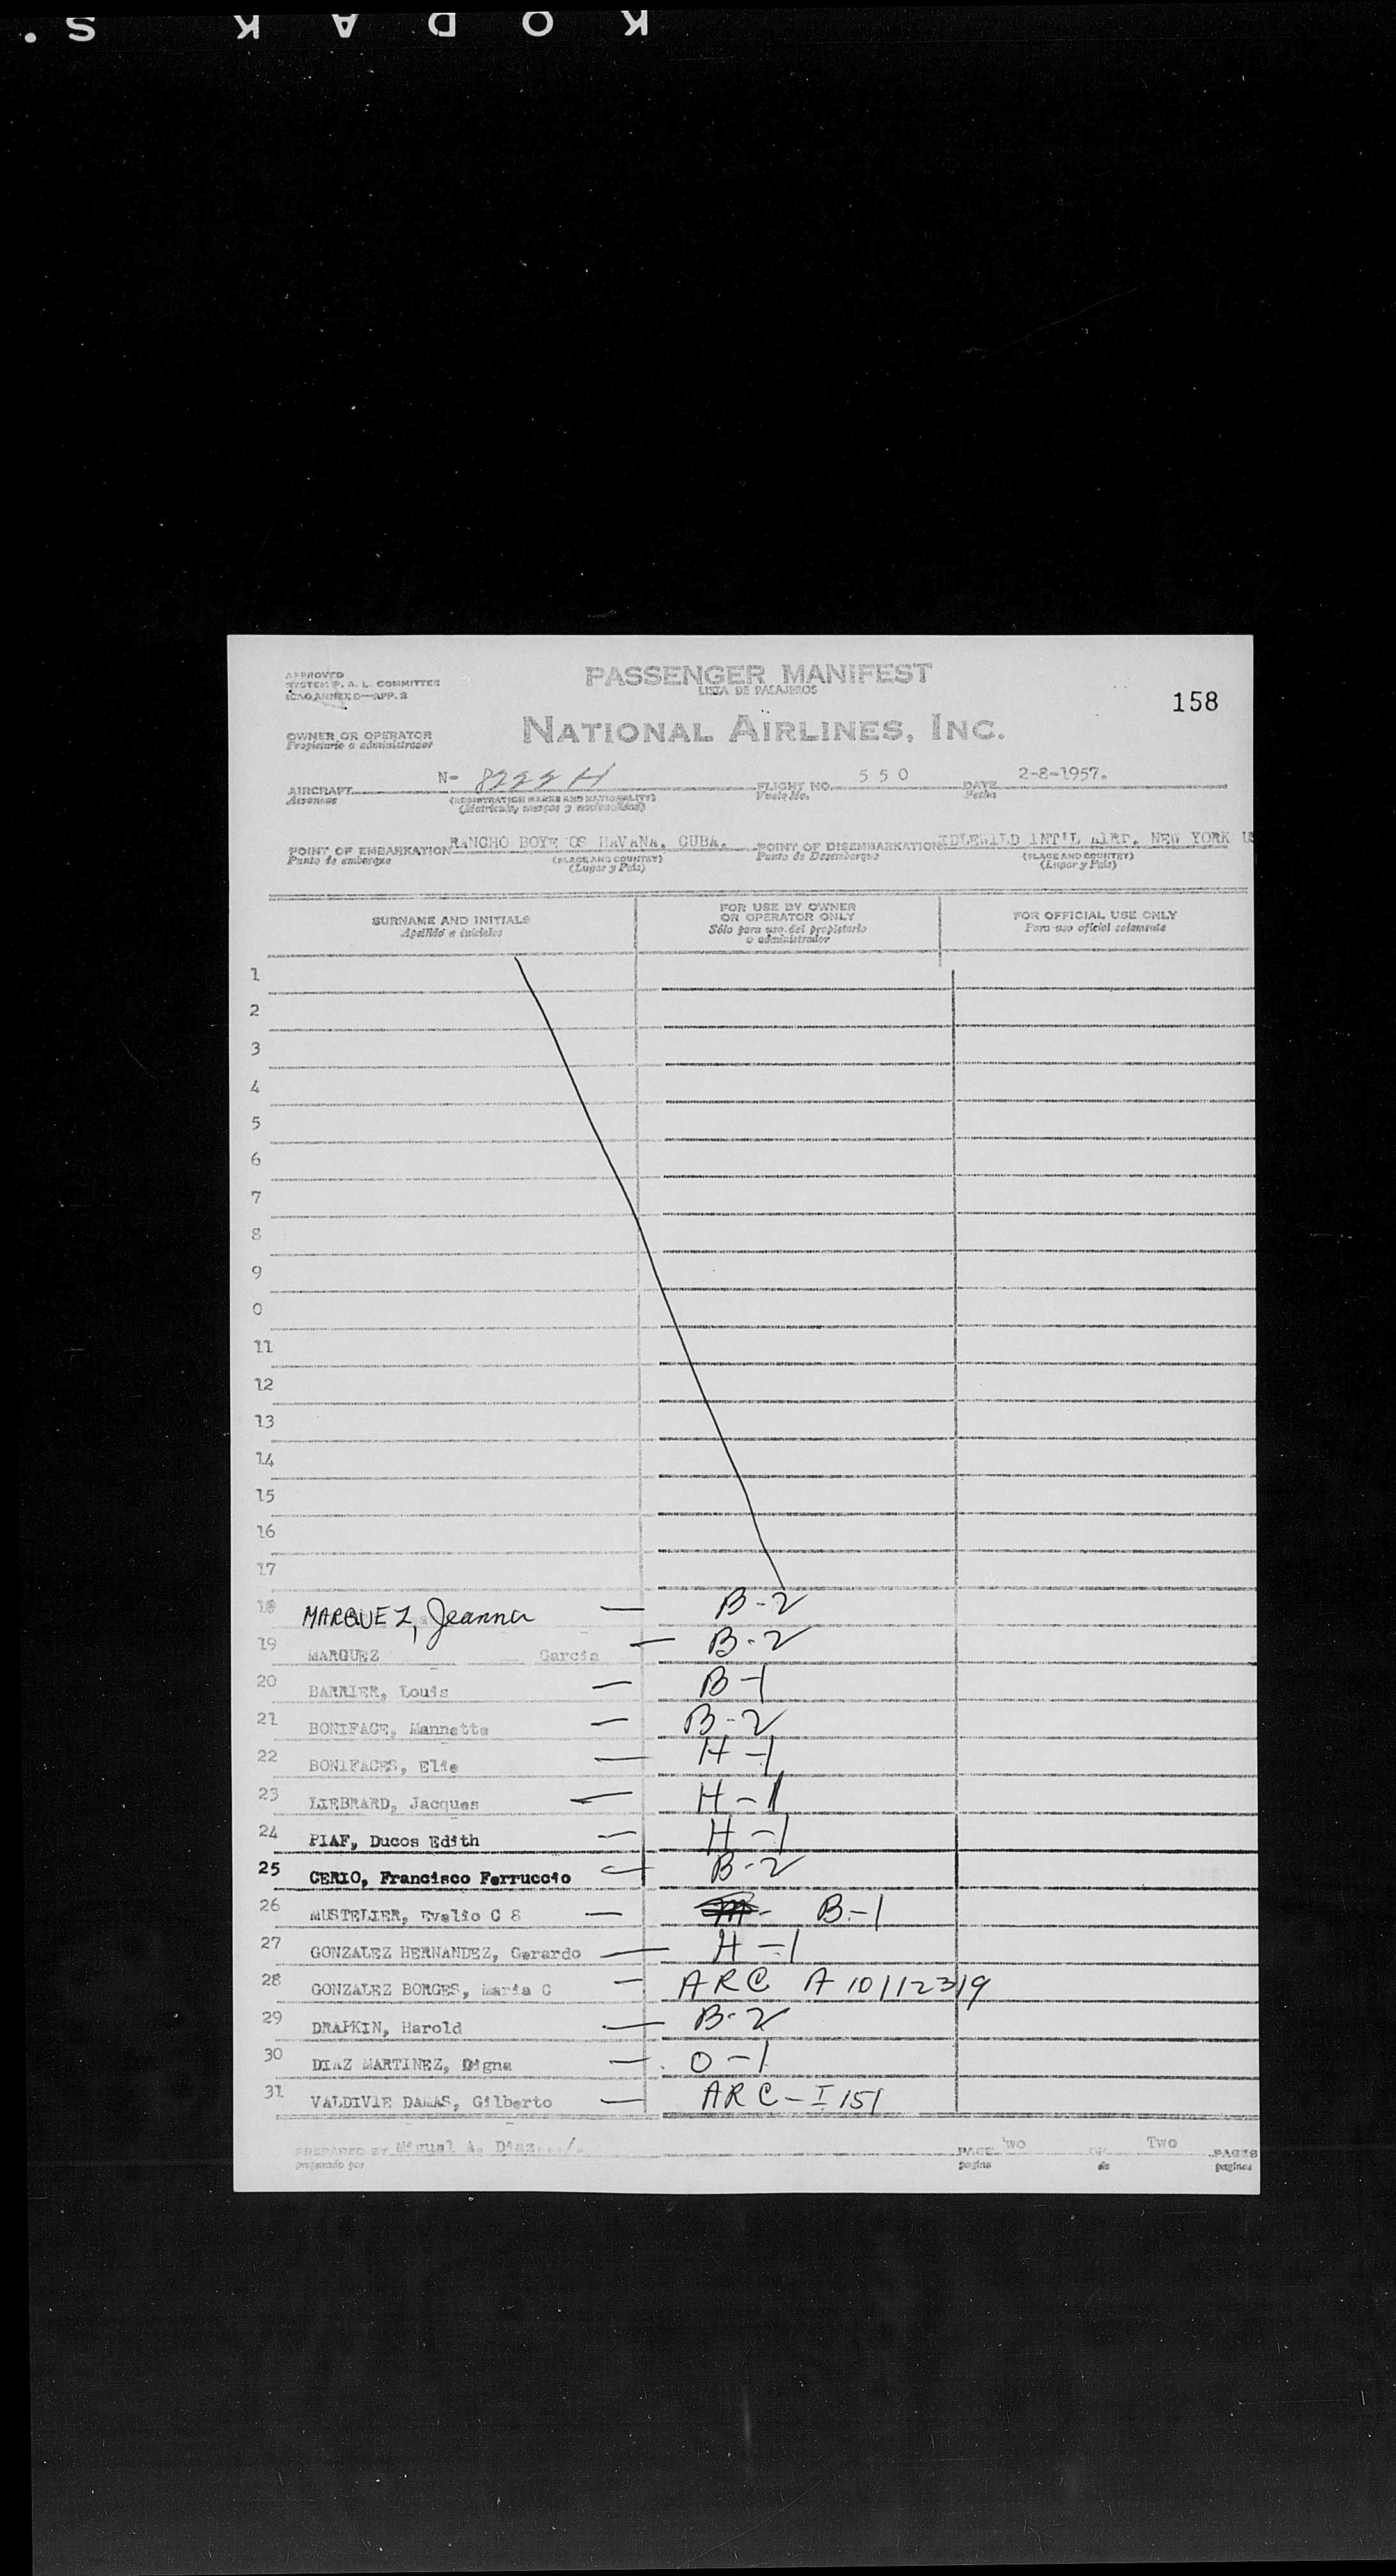 KODAK S.
APPROVED
SYSTEM F. A. L. COMMITTEE
ICAO ANNEX D—APP. 3
PASSENGER MANIFEST
LISTA DE PASAJEROS
158
OWNER OR OPERATOR
Propietario o administrador
NATIONAL AIRLINES, INC.
AIRCRAFT N- 8222H FLIGHT NO. 5 5 0 DATE 2-8-1957.
Aeronave (REGISTRATION MARKS AND NATIONALITY) Vuelo No. Fecha
(Matricula, marcas y nacionalidad)
POINT OF EMBARKATION RANCHO BOYE OS HAVANA, CUBA. POINT OF DISEMBARKATION IDLEWILD INT'L AIRP. NEW YORK US
Punto de embarque (PLACE AND COUNTRY) Punto de Desembarque (PLACE AND COUNTRY)
(Lugar y País) (Lugar y País)
SURNAME AND INITIALS
Apellido e iniciales
FOR USE BY OWNER
OR OPERATOR ONLY
Sólo para uso del propietario
o administrador
FOR OFFICIAL USE ONLY
Para uso oficial solamente
1
2
3
4
5
6
7
8
9
0
11
12
13
14
15
16
17
18 MARQUEZ, Jeanna — B-2
19 MARQUEZ Garcia — B-2
20 BARRIER, Louis — B-1
21 BONIFACE, Mannette — B-2
22 BONIFACES, Elie — H-1
23 LIEBRARD, Jacques — H-1
24 PIAF, Ducos Edith — H-1
25 CERIO, Francisco Ferruccio — B-2
26 MUSTELIER, Evelio C S — B-1
27 GONZALEZ HERNANDEZ, Gerardo — H-1
28 GONZALEZ BORGES, Maria C — ARC A 10112319
29 DRAPKIN, Harold — B-2
30 DIAZ MARTINEZ, Digna — O-1
31 VALDIVIE DAMAS, Gilberto — ARC-I 151
PREPARED BY Miguel A. Diaz.../. PAGE wo OF Two PAGES
preparado por pagina de paginas